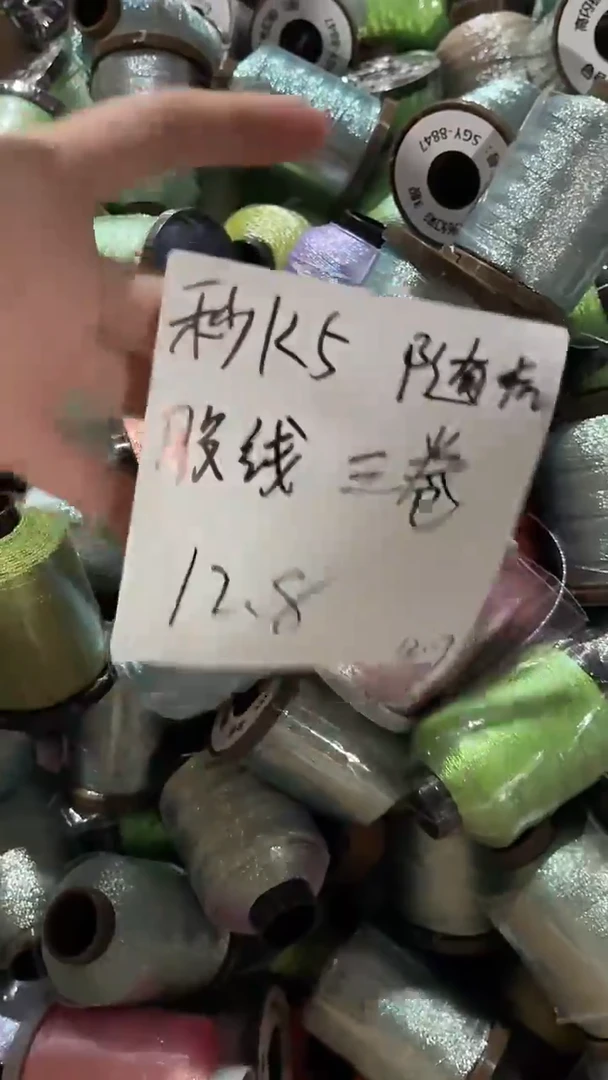 SGY-8847
8847
秒K5 随机
股线 三卷
12.8